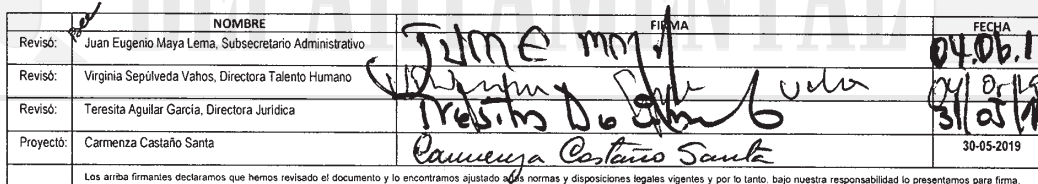 DEPARTAMENTAL
NOMBRE FIRMA FECHA
Revisó: Juan Eugenio Maya Lema, Subsecretario Administrativo 04.06.1
Revisó: Virginia Sepúlveda Vahos, Directora Talento Humano
Revisó: Teresita Aguilar García, Directora Jurídica 31/05/1
Proyectó: Carmenza Castaño Santa Carmenza Castaño Santa 30-05-2019
Los arriba firmantes declaramos que hemos revisado el documento y lo encontramos ajustado a las normas y disposiciones legales vigentes y por lo tanto, bajo nuestra responsabilidad lo presentamos para firma.